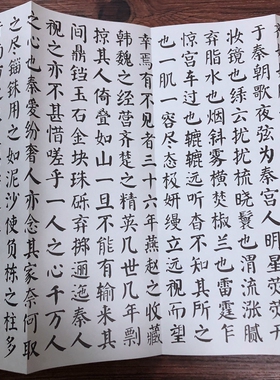 于秦朝歌夜弦为秦宫人明星荧荧
妆镜也绿云扰扰梳晓鬟也渭流涨腻
弃脂水也烟斜雾横焚椒兰也雷霆乍
惊宫车过也辘辘远听杳不知其所之
也一肌一容尽态极妍缦立远视而望
幸焉有不见者三十六年燕赵之收藏
韩魏之经营齐楚之精英几世几年剽
掠其人倚叠如山一旦不能有输来其
间鼎铛玉石金块珠砾弃掷逦迤秦人
视之亦不甚惜嗟乎一人之心千万人
之心也秦爱纷奢人亦念其家奈何取
之尽锱铢用之如泥沙使负栋之柱多